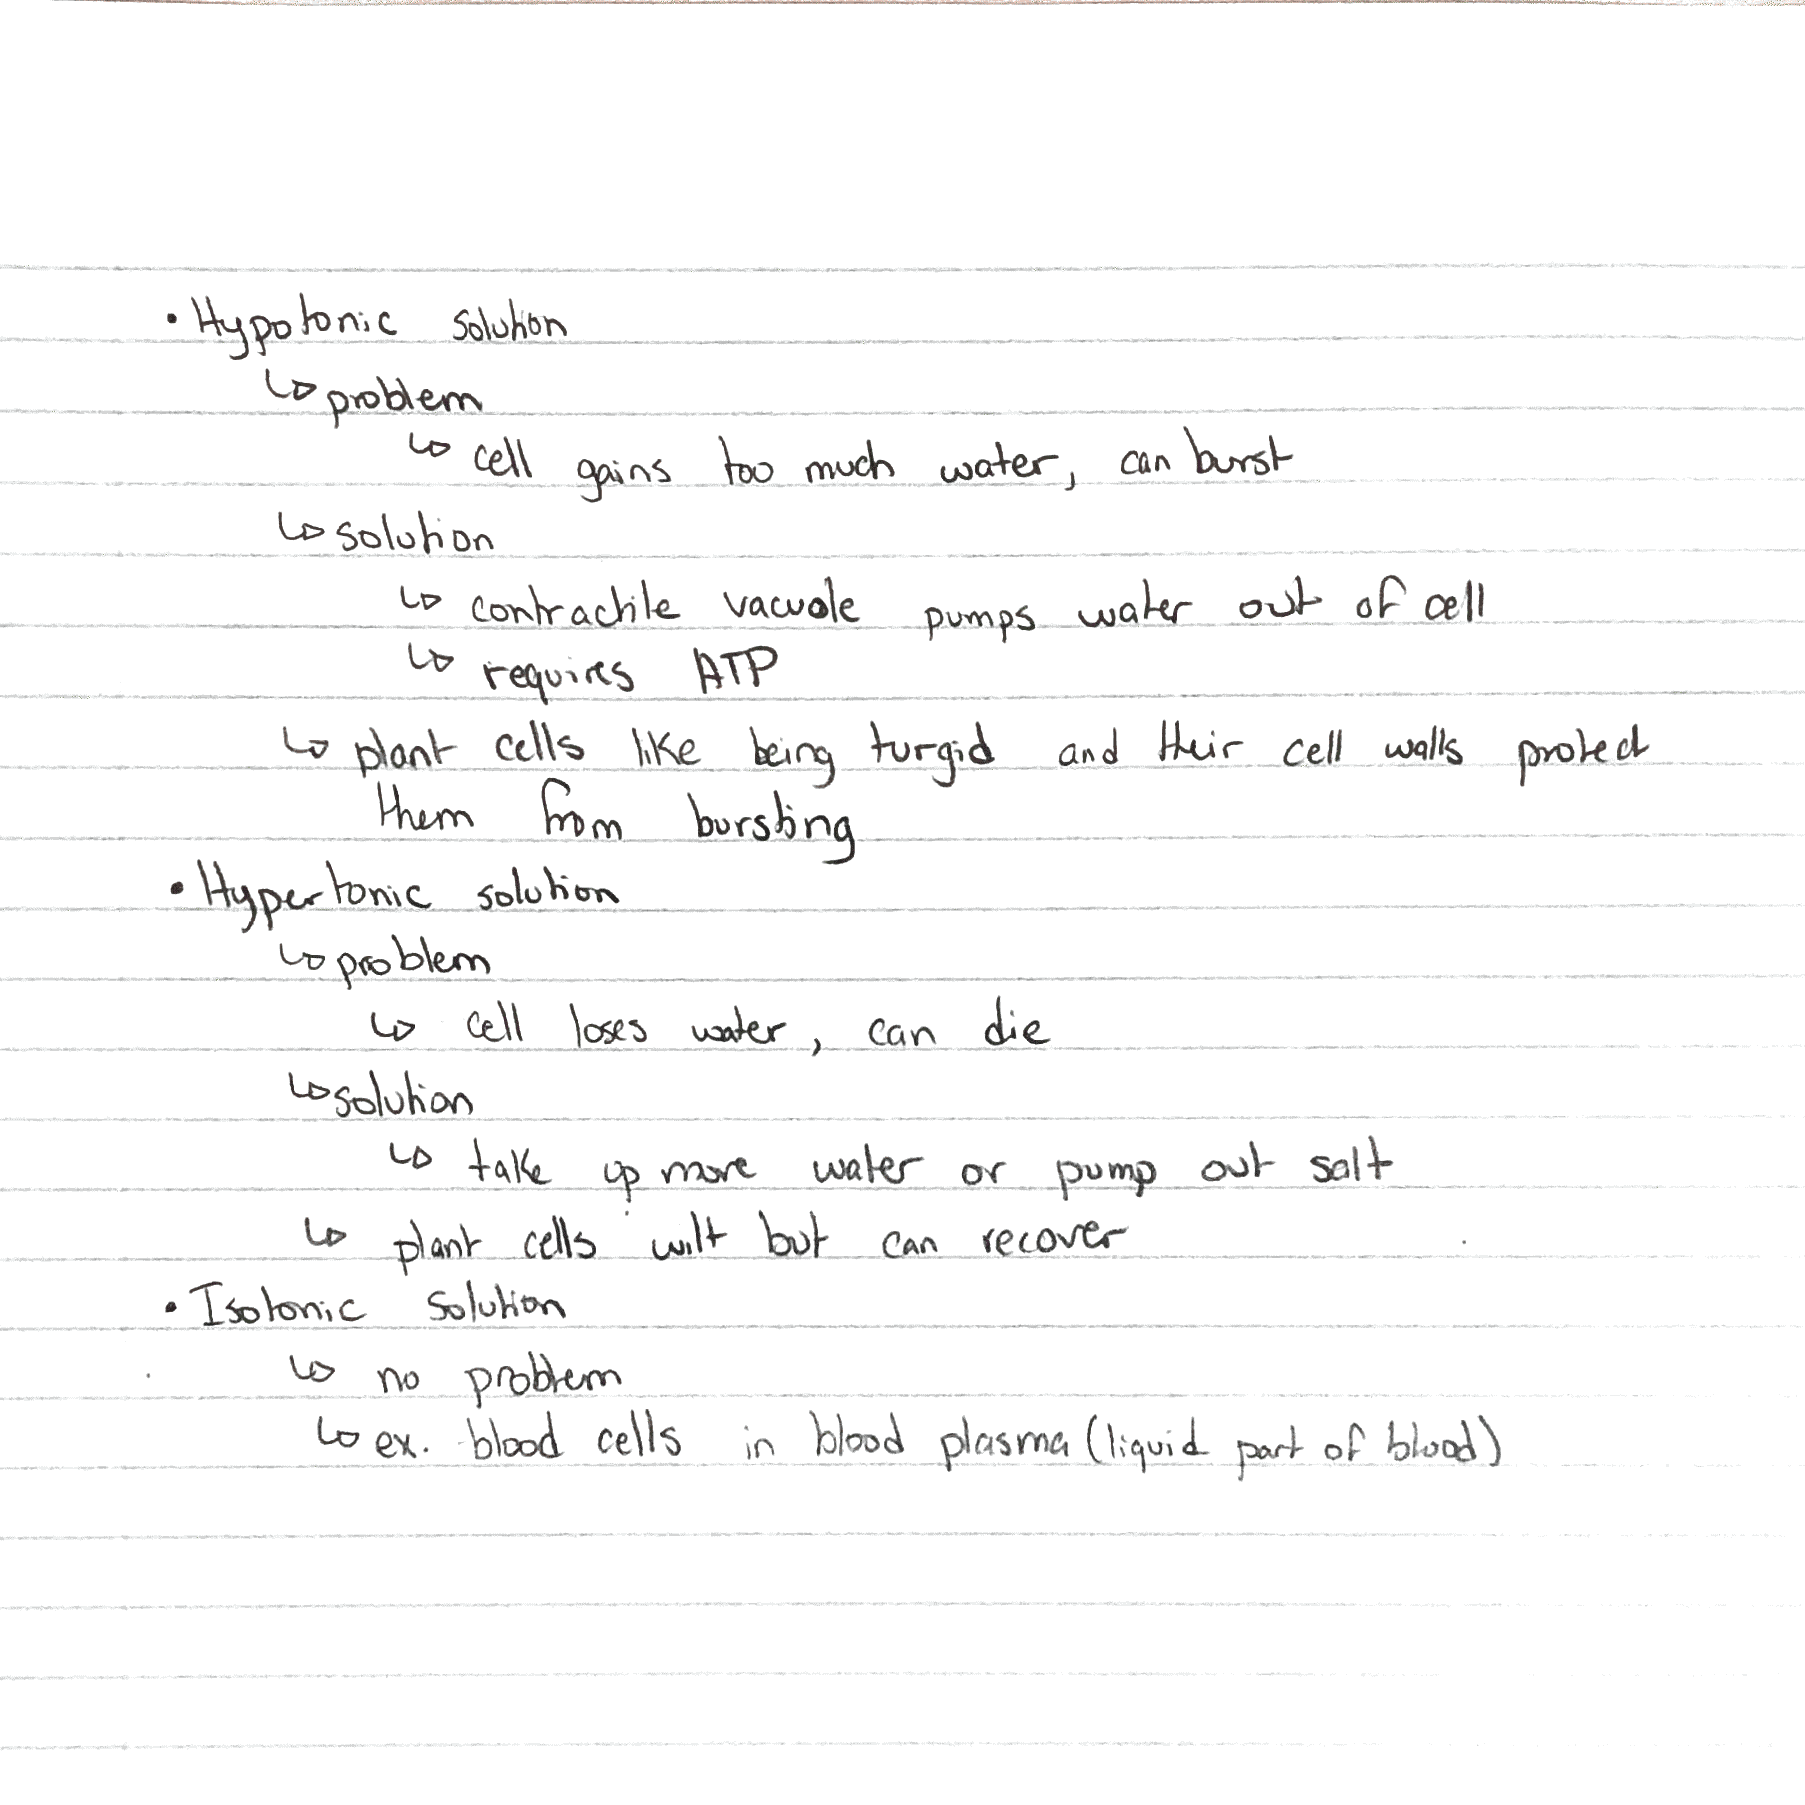 • Hypotonic solution
↳ problem
↳ cell gains too much water, can burst
↳ solution
↳ contractile vacuole pumps water out of cell
↳ requires ATP
↳ plant cells like being turgid and their cell walls protect
them from bursting
• Hypertonic solution
↳ problem
↳ cell loses water, can die
↳ solution
↳ take up more water or pump out salt
↳ plant cells wilt but can recover
• Isotonic solution
↳ no problem
↳ ex. blood cells in blood plasma (liquid part of blood)